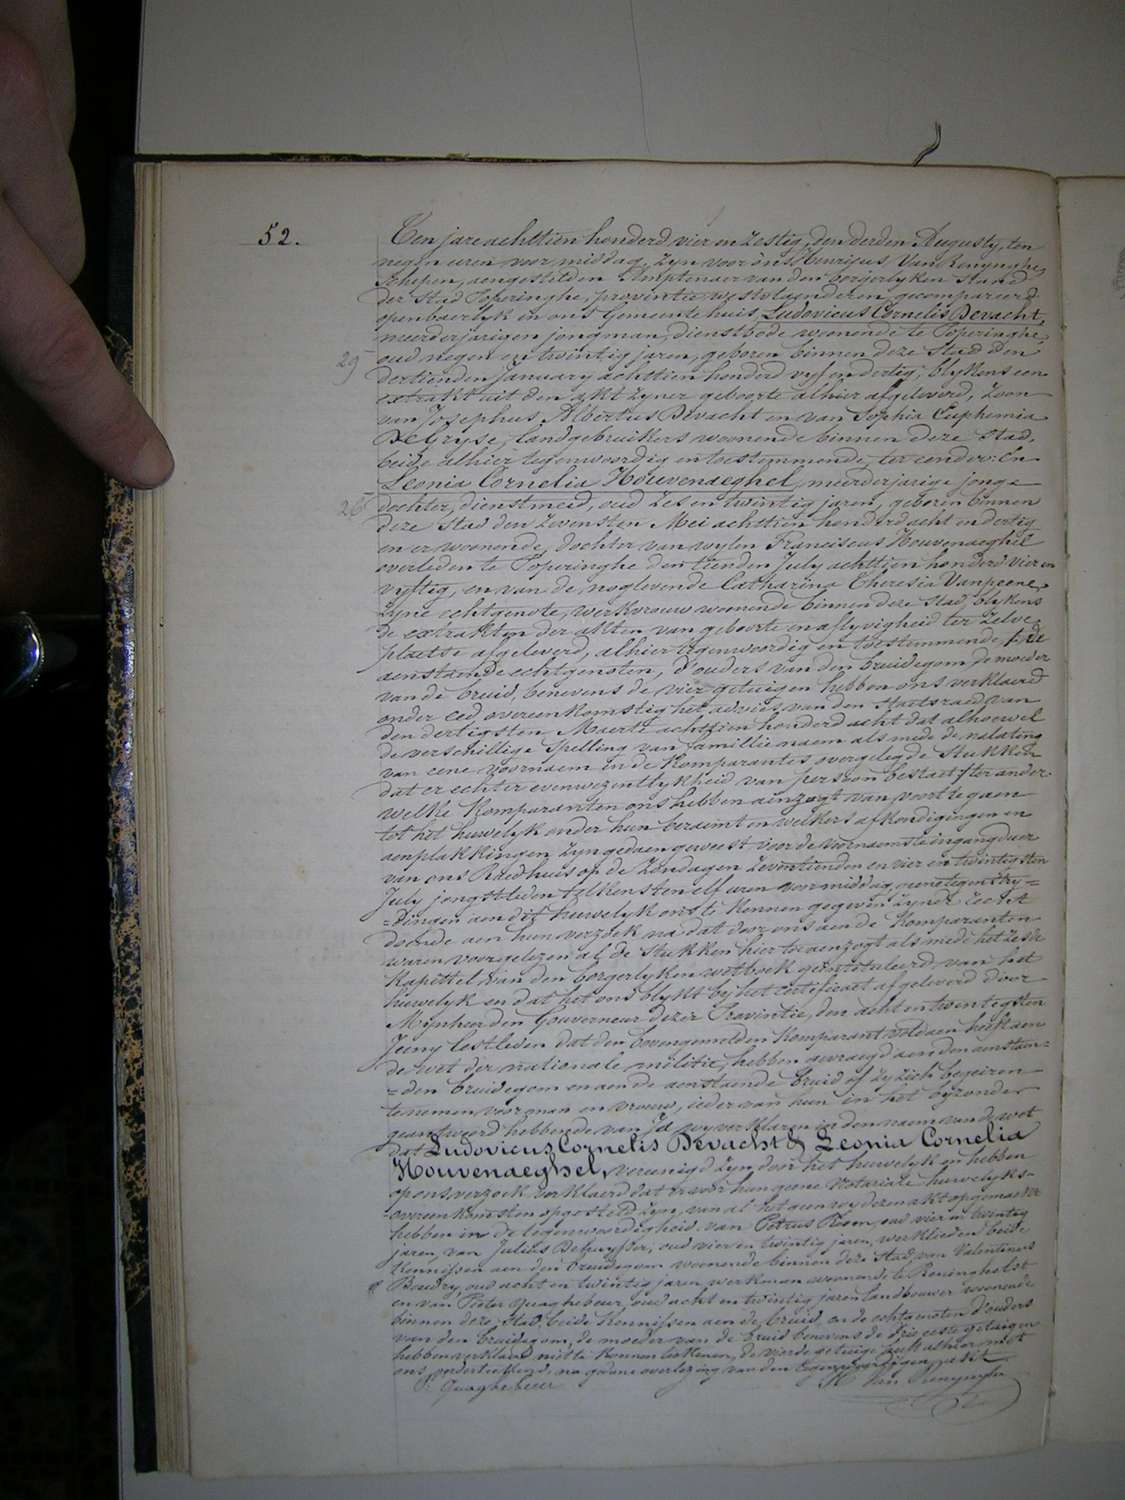 52.
Ten jare achttien honderd vier en zestig, den derden Augusty, ten
negen uren voor middag, zyn voor ons Henricus Van Renynghe,
Schepen, aengestelden Amptenaer van den borgerlyken Stand
der Stad Poperinghe, provintie westvlaenderen, gecompareerd
openbaerlyk in ons Gemeentehuis Ludovicus Cornelis Devacht,
meerderjarigen jongman, dienstbode woonende te Poperinghe,
29
oud negen en twintig jaren, geboren binnen deze Stad den
dertienden January achttien honderd vyf en dertig, blykens een
extrakt uit den akt zyner geboorte alhier afgeleverd, zoon
van Josephus Albertus Devacht en van Sophia Euphemia
DeGryse, landgebruikers woonende binnen deze Stad,
beide alhier tegenwoordig en toestemmende, ter eender: En
Leonia Cornelia Houvenaeghel, meerderjarige jonge
26
dochter, dienstmeid, oud zes en twintig jaren, geboren binnen
deze Stad den zevensten Mei achttien honderd acht en dertig
en er woonende, dochter van wylen Franciscus Houvenaeghel
overleden te Poperinghe den tienden July achttien honderd vier en
vyftig, en van de noglevende Catharina Theresia Vanpeene,
zyne echtgenote, werkvrouw woonende binnen deze Stad, blykens
de extrakten der akten van geboorte en aflyvigheid ter zelve
plaetse afgeleverd, alhier tegenwoordig en toestemmende, de
aenstaende echtgenoten, d'ouders van den bruidegom de moeder
van de bruid, benevens de vier getuigen hebben ons verklaerd
onder eed overeenkomstig het advies van den Staetsraed van
den dertigsten Maerte achttien honderd acht dat alhoewel
de verschillige spelling van famillie naem als mede de nalating
van eene voornaem in de Komparantes overgelegde stukken
dat er echter evenwezentlykheid van persoon bestaet, ter ander
welke Komparanten ons hebben aenzogt van voort te gaen
tot het huwelyk onder hun beraemt en welkers afkondigingen en
aenplakkingen zyn gedaen geweest voor de voornaemste ingangduer
van ons Raedhuis op de Zondagen zeventienden en vier en twintigsten
July jongstleden telkens ten elf uren voormiddag, geene tegenstry=
=dingen aen dit huwelyk ons te kennen gegeven zynde, recht
doende aen hun verzoek na dat door ons aen de Komparanten
waren voorgelezen al de stukken hier toe aenzogt als mede het zesde
Kapittel van den borgerlyken wetboek geintituleerd van het
huwelyk en dat het ons blykt by het certificaet afgeleverd door
Mynheer den Gouverneur dezer Provintie, den acht en twintigsten
Juny lestleden dat den bovengemelden Komparant voldaen heeft aen
de wet der nationale militie, hebben gevraegd aen den aenstaen=
=den bruidegom en aen de aenstaende bruid of zy zich begeiren
te nemen voor man en vrouw, ieder van hun in het byzonder
geantwoord hebbende van Ja, wy verklaren in den naem van de wet
dat Ludovicus Cornelis Devacht & Leonia Cornelia
Houvenaeghel, vereenigd zyn door het huwelyk en hebben
op ons verzoek verklaerd dat er voor hun geene Notariale huwelyks-
overeenkomsten opgesteld zyn, van al het geen wy dezen akt opgemaekt
hebben in de tegenwoordigheid van Petrus Room, oud vier en twintig
jaren, van Julius Depuysser, oud vier en twintig jaren, werklieden beide
Kennissen aen den bruidegom woonende binnen deze Stad, van Valentinus
Baudry, oud acht en twintig jaren werkman woonende te Reninghelst
en van Pieter Quaghebeur, oud acht en twintig jaren landbouwer woonende
binnen deze Stad, beide Kennissen aen de bruid, en de echtgenoten d'ouders
van den bruidegom, de moeder van de bruid benevens de drie eerste getuigen
hebben verklaerd niet te konnen teekenen, de vierde getuige heeft alhier met
ons onderteekend, na gedane overlezing van den tegenwoordigen akt
P. Quaghebeur H. Van Renynghe